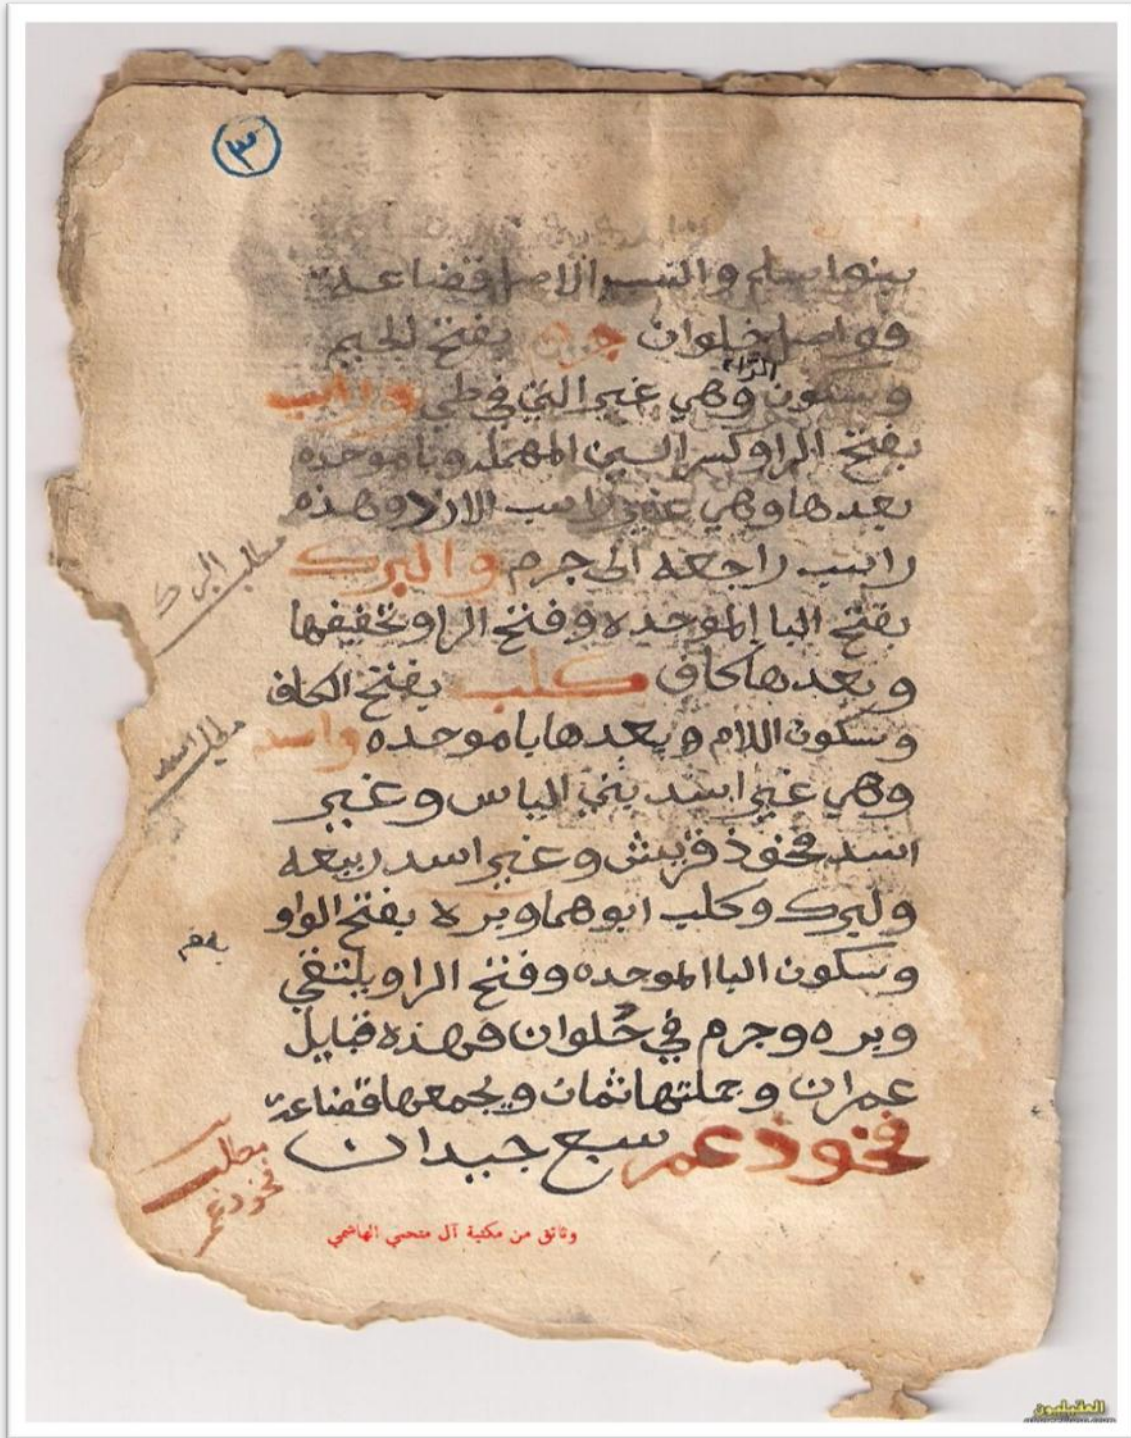 ٣
بنوا سلم والنسب الاصل قضاعة
فواصل حلوان جرم بفتح الجيم
وسكون الراء وهي غير التي في طي وراسب
بفتح الرا وكسر السين المهمله وبا موحده
بعدها وهي غير راسب الازد وهذه
راسب راجعه الى جرم والبرك
مطلب البرك
بفتح البا الموحده وفتح الرا وتخفيفها
وبعدها كاف كلب بفتح الكاف
وسكون اللام وبعدها با موحده واسد
مطلب اسد
وهي غير اسد بني الياس وغير
اسد فخوذ قريش وغير اسد ربيعه
ولبرك وكلب ابوهما وبره بفتح الواو
وسكون البا الموحده وفتح الرا ويلتقي
وبره وجرم في حلوان فهذه قبايل
عمران وجملتها ثمان ويجمعها قضاعة
فخوذ عمر سبع جيدان
مطلب
فخوذ عمر
وثائق من مكتبة آل متحمي الهاشمي
العقيليون